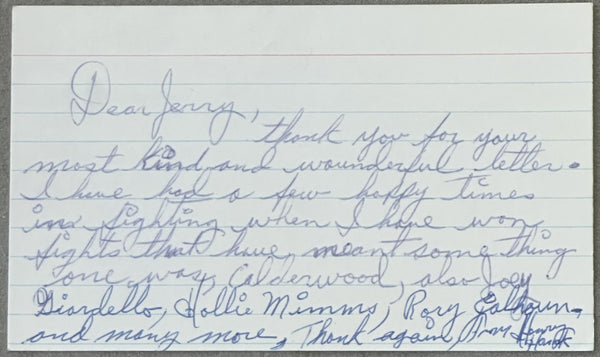 Dear Jerry,
thank you for your
most kind and wounderful letter.
I have had a few happy times
in fighting when I have won
fights that have meant something
one was, Calderwood, also Joey
Giardello, Hollie Mimms, Rory Calhoun,
and many more, Thank again, Henry
Hank